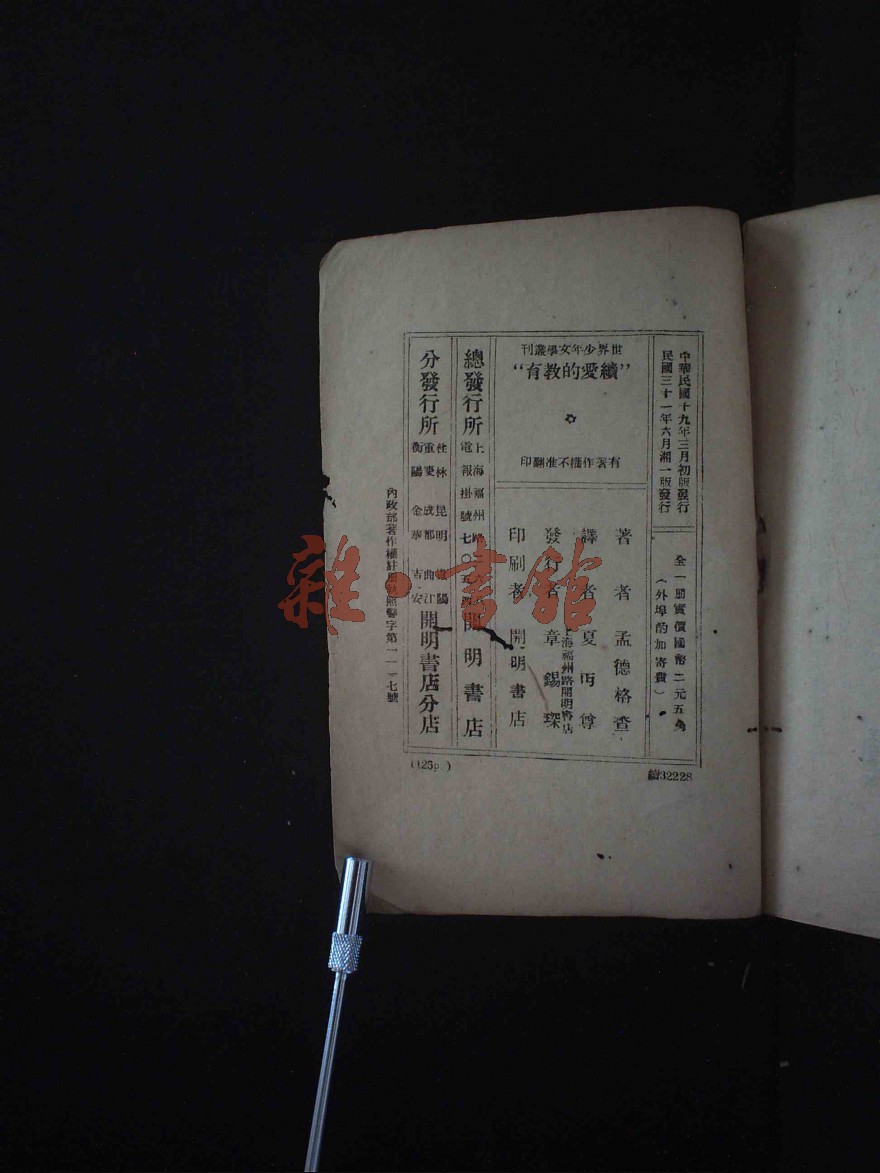 中華民國十九年三月初版發行
民國三十一年六月湘一版發行
全一冊實價國幣二元五角
(外埠酌加寄費)
世界少年文學叢刊
“續愛的教育”
有著作權不准翻印
著者 孟德格查
譯者 夏丏尊
發行者 章錫琛
上海福州路開明書店
印刷者 開明書店
總發行所
上海福州路
電報掛號七〇五
開明書店
分發行所
桂林 昆明 貴陽
重慶 成都 曲江
衡陽 金華 吉安
開明書店分店
內政部著作權註冊執照警字第一一一七號
(125p.)
續32228
雜·書館